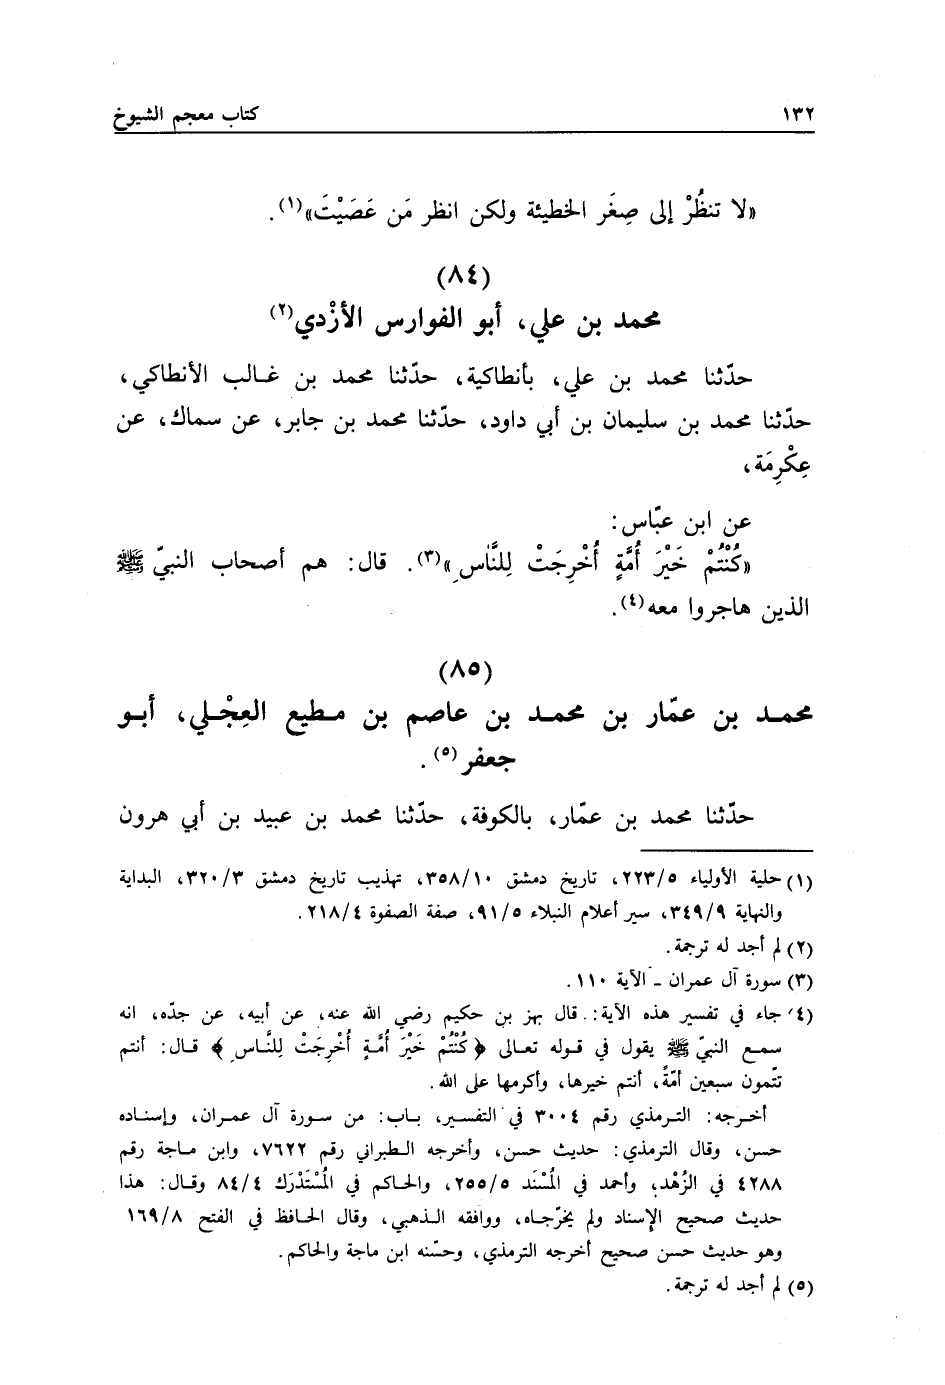 ١٣٢ كتاب معجم الشيوخ
«لا تنظُرْ إلى صِغَر الخطيئة ولكن انظر مَن عَصَيْتَ»(١).
(٨٤)
محمد بن علي، أبو الفوارس الأزْدي(٢)
حدّثنا محمد بن علي، بأنطاكية، حدّثنا محمد بن غالب الأنطاكي،
حدّثنا محمد بن سليمان بن أبي داود، حدّثنا محمد بن جابر، عن سماك، عن
عِكْرِمَة،
عن ابن عبّاس:
«كُنْتُمْ خَيْرَ أُمَّةٍ أُخْرِجَتْ لِلنَّاسِ»(٣). قال: هم أصحاب النبيّ ﷺ
الذين هاجروا معه(٤).
(٨٥)
محمد بن عمّار بن محمد بن عاصم بن مطيع العِجْلي، أبو
جعفر(٥).
حدّثنا محمد بن عمّار، بالكوفة، حدّثنا محمد بن عبيد بن أبي هرون
(١) حلية الأولياء ٢٢٣/٥، تاريخ دمشق ٣٥٨/١٠، تهذيب تاريخ دمشق ٣٢٠/٣، البداية
والنهاية ٣٤٩/٩، سير أعلام النبلاء ٩١/٥، صفة الصفوة ٢١٨/٤.
(٢) لم أجد له ترجمة.
(٣) سورة آل عمران ـ الآية ١١٠.
(٤) جاء في تفسير هذه الآية: قال بهز بن حكيم رضي الله عنه، عن أبيه، عن جدّه، انه
سمع النبيّ ﷺ يقول في قوله تعالى ﴿كُنْتُمْ خَيْرَ أُمَّةٍ أُخْرِجَتْ لِلنَّاسِ﴾ قال: أنتم
تتّمون سبعين أمّةً، أنتم خيرها، وأكرمها على الله.
أخرجه: الترمذي رقم ٣٠٠٤ في التفسير، باب: من سورة آل عمران، وإسناده
حسن، وقال الترمذي: حديث حسن، وأخرجه الطبراني رقم ٧٦٢٢، وابن ماجة رقم
٤٢٨٨ في الزُهْد، وأحمد في المُسْنَد ٢٥٥/٥، والحاكم في المُسْتَدْرَك ٨٤/٤ وقال: هذا
حديث صحيح الإسناد ولم يخرّجاه، ووافقه الذهبي، وقال الحافظ في الفتح ١٦٩/٨
وهو حديث حسن صحيح أخرجه الترمذي، وحسّنه ابن ماجة والحاكم.
(٥) لم أجد له ترجمة.